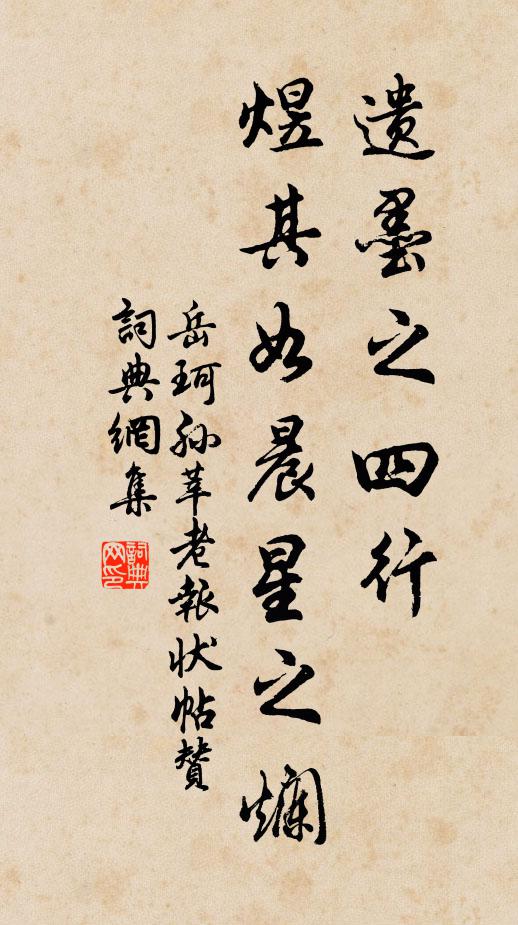 遺墨之四行
煜其如晨星之爛
岳珂孫莘老報狀帖贊
詞典網集
詞典網印